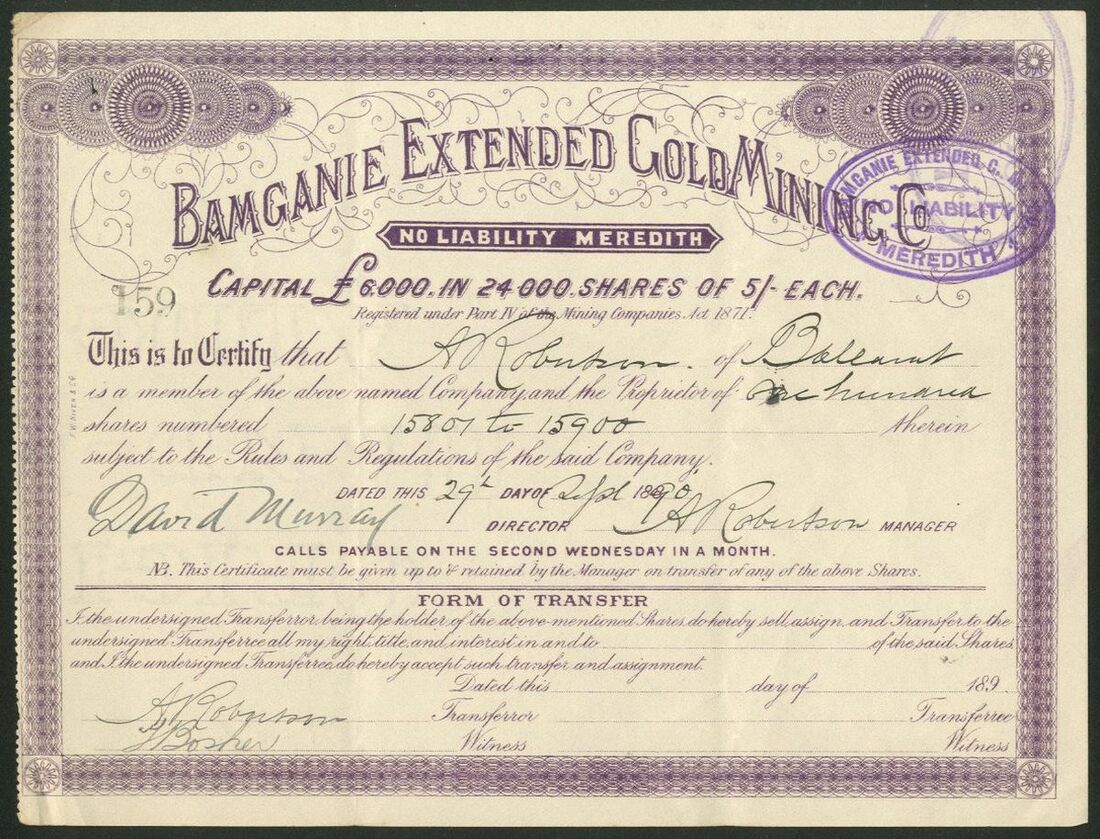 BAMGANIE EXTENDED GOLD MINING CO
NO LIABILITY MEREDITH
CAPITAL £6000. IN 24000. SHARES OF 5/- EACH.
Registered under Part IV of the Mining Companies Act 1871.
159
BAMGANIE EXTENDED G. M.
NO LIABILITY
MEREDITH
This is to Certify that A Robertson. of Ballarat
is a member of the above named Company, and the Proprietor of one hundred
shares numbered 15801 to 15900 therein
subject to the Rules and Regulations of the said Company.
DATED THIS 29th DAY OF Sept 1890
David Murray DIRECTOR A Robertson MANAGER
CALLS PAYABLE ON THE SECOND WEDNESDAY IN A MONTH.
NB. This Certificate must be given up to & retained by the Manager on transfer of any of the above Shares.
FORM OF TRANSFER
I, the undersigned Transferror, being the holder of the above-mentioned Shares, do hereby sell, assign, and Transfer to the
undersigned Transferree all my right, title, and interest in and to of the said Shares
and I, the undersigned Transferree, do hereby accept such transfer and assignment.
Dated this day of 189.
A Robertson Transferror Transferree
Witness Witness
F. W. NIVEN & CO